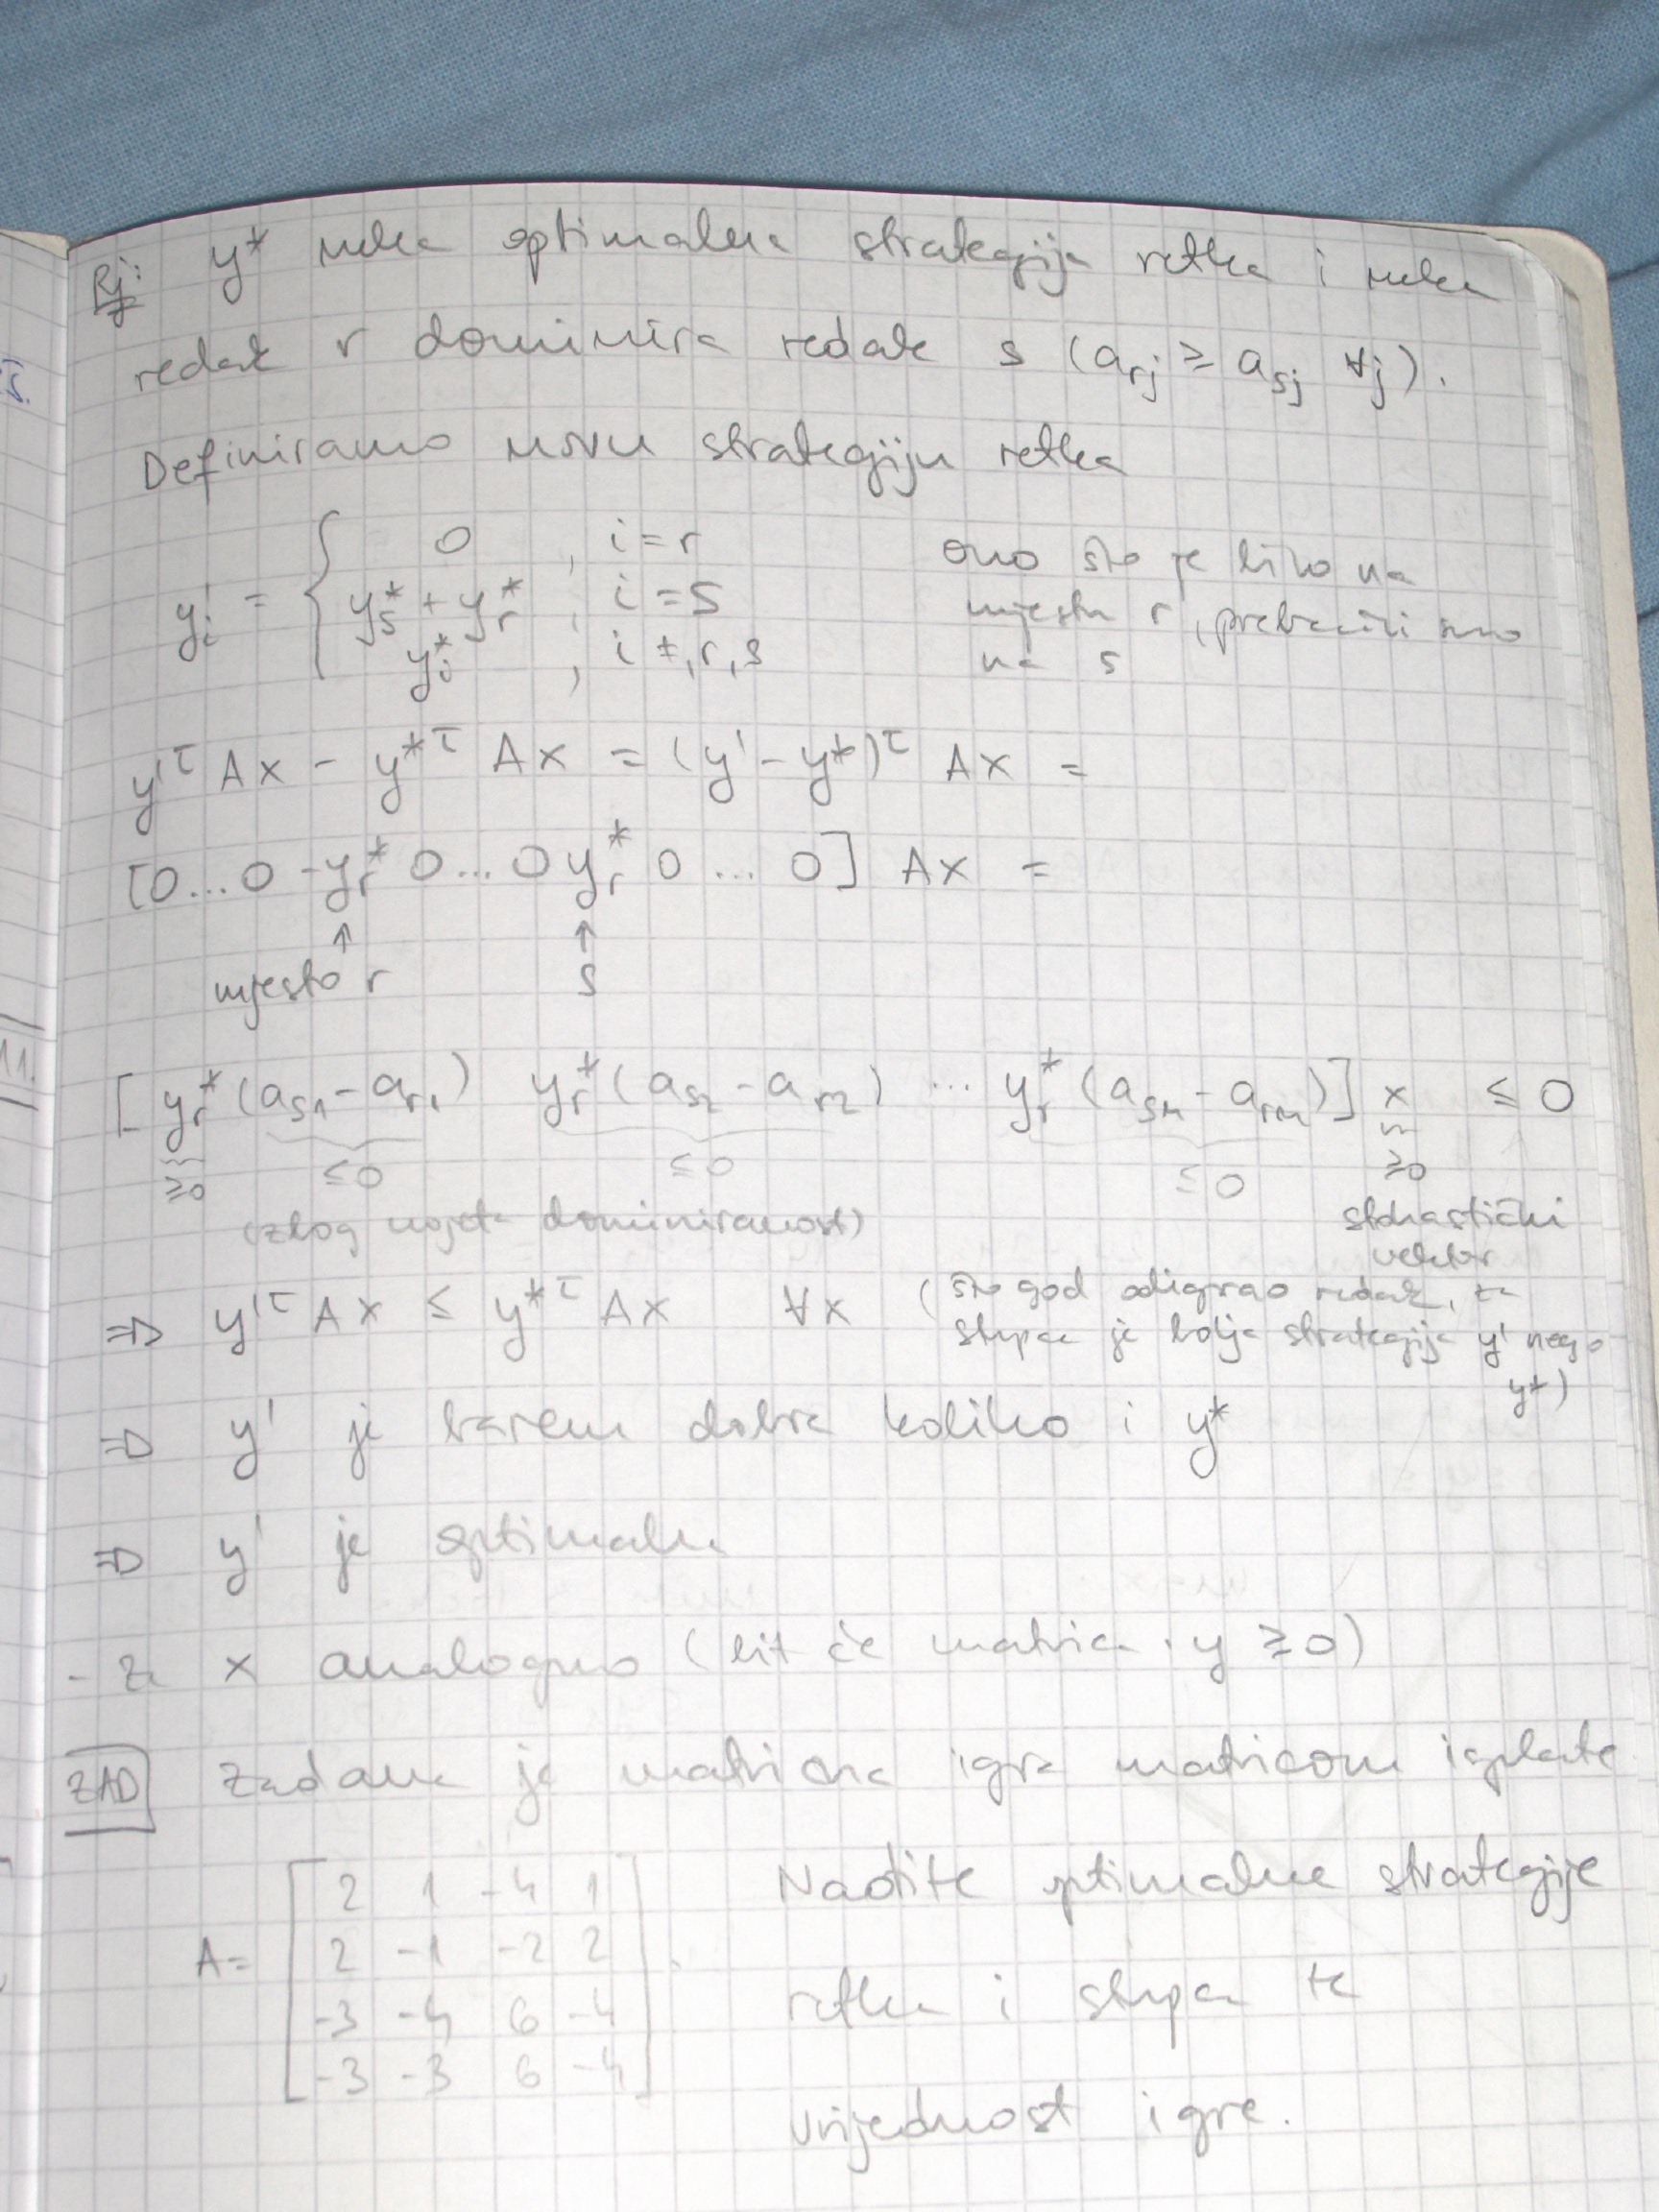 Rj: y* neka optimalna strategija retka i neka
redak r dominira redak s (a_rj ≥ a_sj ∀j).
Definiramo novu strategiju retka
y'_i = { 0 , i=r
y_s* + y_r* , i=s
y_i* , i≠,r,s
ono što je bilo na
mjestu r, prebacili smo
na s
y'^τ Ax - y*^τ Ax = (y' - y*)^τ Ax =
[0...0 -y_r* 0...0 y_r* 0 ... 0] Ax =
↑ ↑
mjesto r s
[y_r*(a_s1 - a_r1) y_r*(a_s2 - a_r2) ... y_r*(a_sn - a_rn)] x ≤ 0
≥0 ≤0 ≤0 ≤0 ≥0
(zbog uvjeta dominiranosti) stohastički
vektor
⇒ y'^τ Ax ≤ y*^τ Ax ∀x (što god odigrao redak, za
stupca je bolja strategija y' nego
y*)
⇒ y' je barem dobra koliko i y*
⇒ y' je optimalna
- za x analogno (bit će matrica · y ≥ 0)
ZAD Zadana je matrična igra matricom isplate
A = [ 2 1 -4 1
2 -1 -2 2
-3 -4 6 -4
-3 -3 6 -4 ].
Nađite optimalne strategije
retka i stupca te
vrijednost igre.
11.